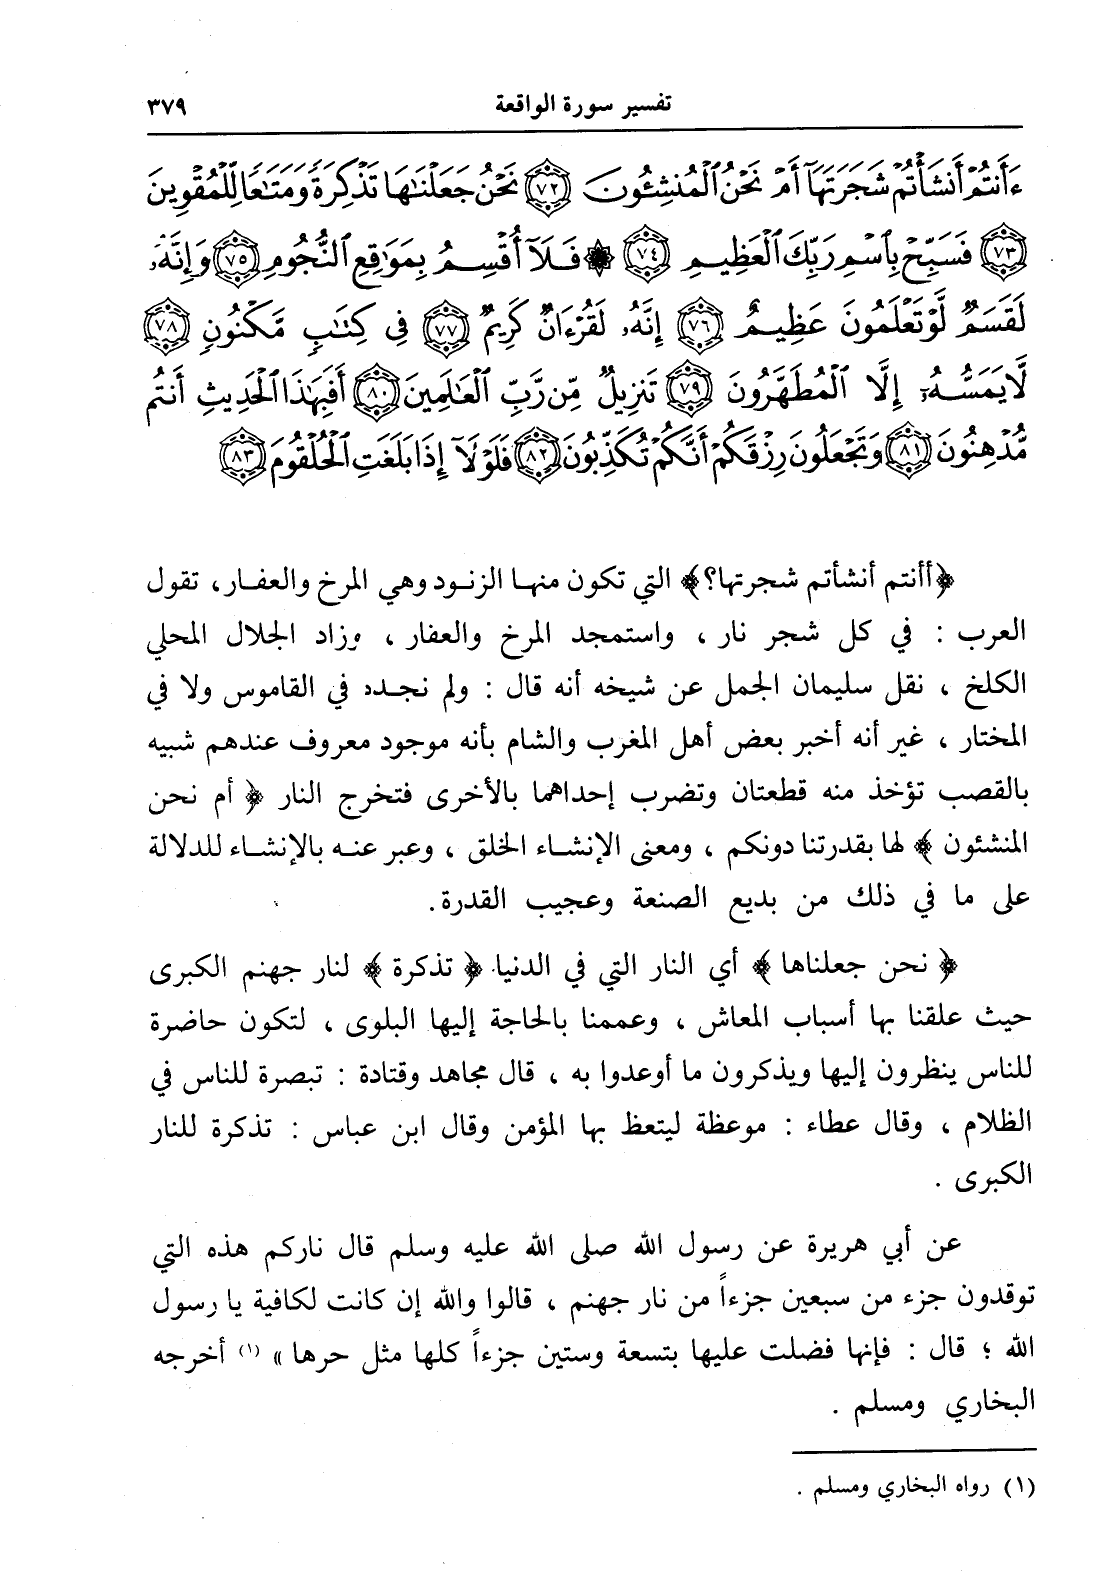 تفسير سورة الواقعة ٣٧٩
ءَأَنتُمْ أَنشَأْتُمْ شَجَرَتَهَآ أَمْ نَحْنُ ٱلْمُنشِـُٔونَ ﴿٧٢﴾ نَحْنُ جَعَلْنَٰهَا تَذْكِرَةً وَمَتَٰعًا لِّلْمُقْوِينَ
﴿٧٣﴾ فَسَبِّحْ بِٱسْمِ رَبِّكَ ٱلْعَظِيمِ ﴿٧٤﴾ ۞ فَلَآ أُقْسِمُ بِمَوَٰقِعِ ٱلنُّجُومِ ﴿٧٥﴾ وَإِنَّهُۥ
لَقَسَمٌ لَّوْ تَعْلَمُونَ عَظِيمٌ ﴿٧٦﴾ إِنَّهُۥ لَقُرْءَانٌ كَرِيمٌ ﴿٧٧﴾ فِى كِتَٰبٍ مَّكْنُونٍ ﴿٧٨﴾
لَّا يَمَسُّهُۥٓ إِلَّا ٱلْمُطَهَّرُونَ ﴿٧٩﴾ تَنزِيلٌ مِّن رَّبِّ ٱلْعَٰلَمِينَ ﴿٨٠﴾ أَفَبِهَٰذَا ٱلْحَدِيثِ أَنتُم
مُّدْهِنُونَ ﴿٨١﴾ وَتَجْعَلُونَ رِزْقَكُمْ أَنَّكُمْ تُكَذِّبُونَ ﴿٨٢﴾ فَلَوْلَآ إِذَا بَلَغَتِ ٱلْحُلْقُومَ ﴿٨٣﴾
﴿أأنتم أنشأتم شجرتها؟﴾ التي تكون منها الزنود وهي المرخ والعفار، تقول
العرب : في كل شجر نار ، واستمجد المرخ والعفار ، وزاد الجلال المحلي
الكلخ ، نقل سليمان الجمل عن شيخه أنه قال : ولم نجده في القاموس ولا في
المختار ، غير أنه أخبر بعض أهل المغرب والشام بأنه موجود معروف عندهم شبيه
بالقصب تؤخذ منه قطعتان وتضرب إحداهما بالأخرى فتخرج النار ﴿ أم نحن
المنشئون ﴾ لها بقدرتنا دونكم ، ومعنى الإنشاء الخلق ، وعبر عنه بالإنشاء للدلالة
على ما في ذلك من بديع الصنعة وعجيب القدرة.
﴿ نحن جعلناها ﴾ أي النار التي في الدنيا ﴿ تذكرة ﴾ لنار جهنم الكبرى
حيث علقنا بها أسباب المعاش ، وعممنا بالحاجة إليها البلوى ، لتكون حاضرة
للناس ينظرون إليها ويذكرون ما أوعدوا به ، قال مجاهد وقتادة : تبصرة للناس في
الظلام ، وقال عطاء : موعظة ليتعظ بها المؤمن وقال ابن عباس : تذكرة للنار
الكبرى .
عن أبي هريرة عن رسول الله صلى الله عليه وسلم قال ناركم هذه التي
توقدون جزء من سبعين جزءاً من نار جهنم ، قالوا والله إن كانت لكافية يا رسول
الله ؛ قال : فإنها فضلت عليها بتسعة وستين جزءاً كلها مثل حرها » (١) أخرجه
البخاري ومسلم .
(١) رواه البخاري ومسلم .